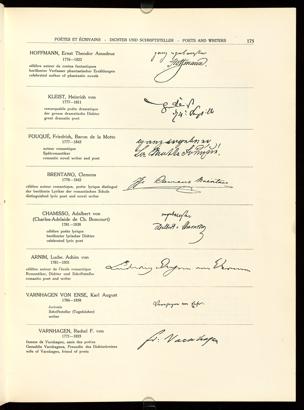 POÈTES ET ÉCRIVAINS - DICHTER UND SCHRIFTSTELLER - POETS AND WRITERS 175
HOFFMANN, Ernst Theodor Amadeus
1776—1822
célèbre auteur de contes fantastiques
berühmter Verfasser phantastischer Erzählungen
celebrated author of phantastic novels
Hoffmann
KLEIST, Heinrich von
1777—1811
remarquable poète dramatique
der grosse dramatische Dichter
great dramatic poet
FOUQUÉ, Friedrich, Baron de la Motte
1777—1843
auteur romantique
Spätromantiker
romantic novel writer and poet
BRENTANO, Clemens
1778—1842
célèbre auteur romantique, poète lyrique distingué
der berühmte Lyriker der romantischen Schule
distinguished lyric poet and novel writer
Clemens Brentano
CHAMISSO, Adalbert von
(Charles-Adelaide de Ch. Boncourt)
1781—1838
célèbre poète lyrique
berühmter lyrischer Dichter
celebrated lyric poet
ARNIM, Ludw. Achim von
1781—1831
célèbre auteur de l'école romantique
Romantiker, Dichter und Schriftsteller
romantic poet and writer
VARNHAGEN VON ENSE, Karl August
1785—1858
écrivain
Schriftsteller (Tagebücher)
writer
VARNHAGEN, Rachel F. von
1771—1833
femme de Varnhagen, amie des poètes
Gemahlin Varnhagens, Freundin des Dichterkreises
wife of Varnhagen, friend of poets
Fr. Varnhagen